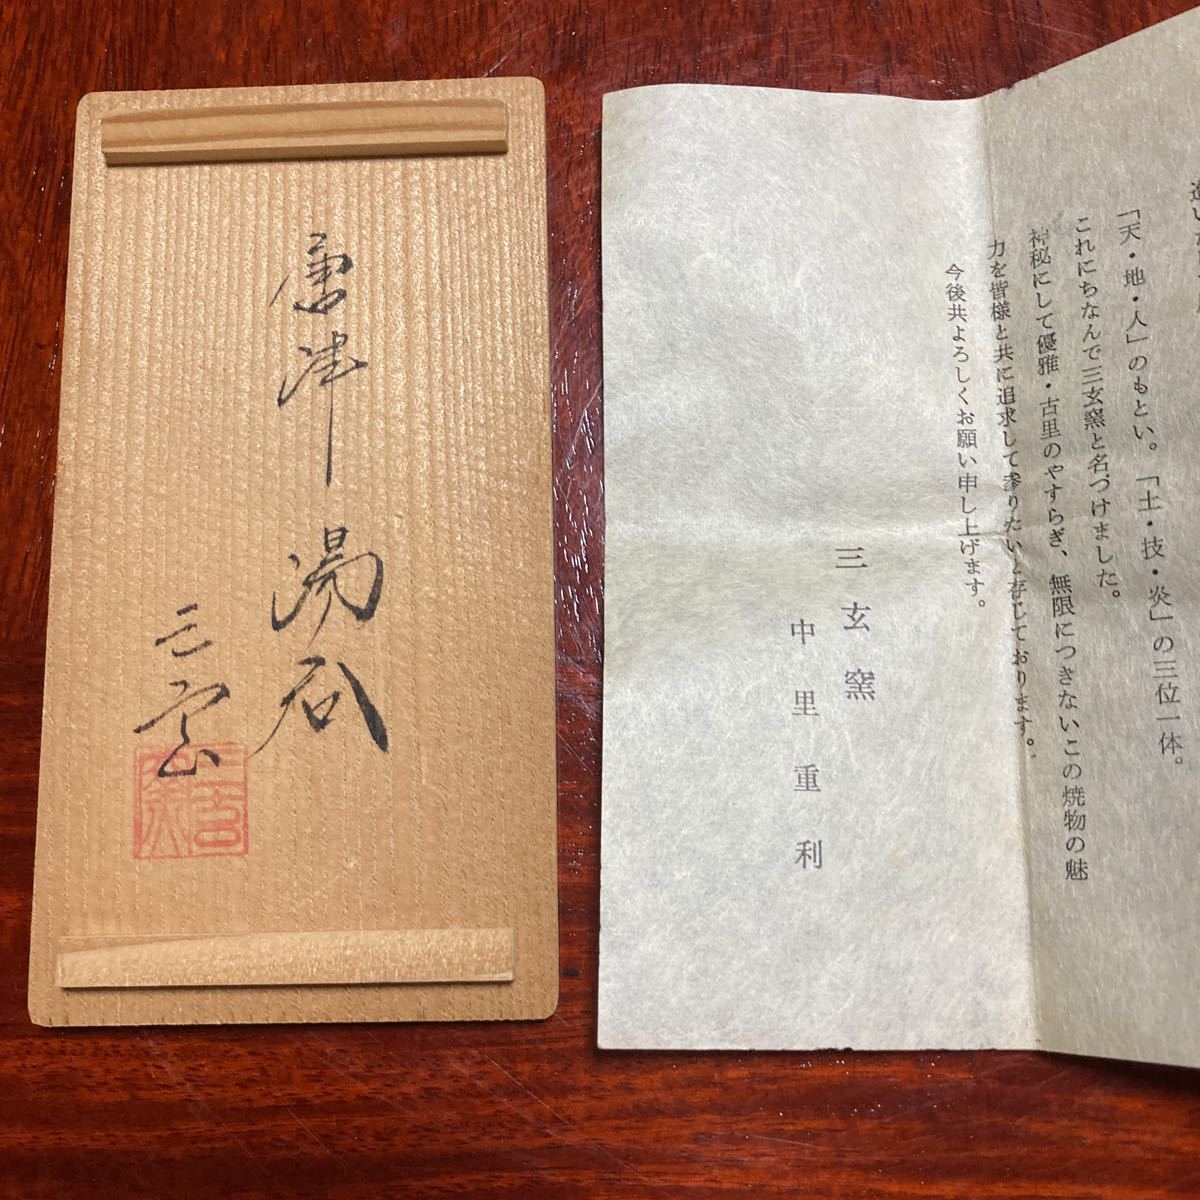 唐津湯呑
三玄
「天・地・人」のもとい。「土・技・炎」の三位一体。
これにちなんで三玄窯と名づけました。
神秘にして優雅・古里のやすらぎ、無限につきないこの焼物の魅
力を皆様と共に追求して参りたいと存じております。
今後共よろしくお願い申し上げます。
三玄窯
中里重利